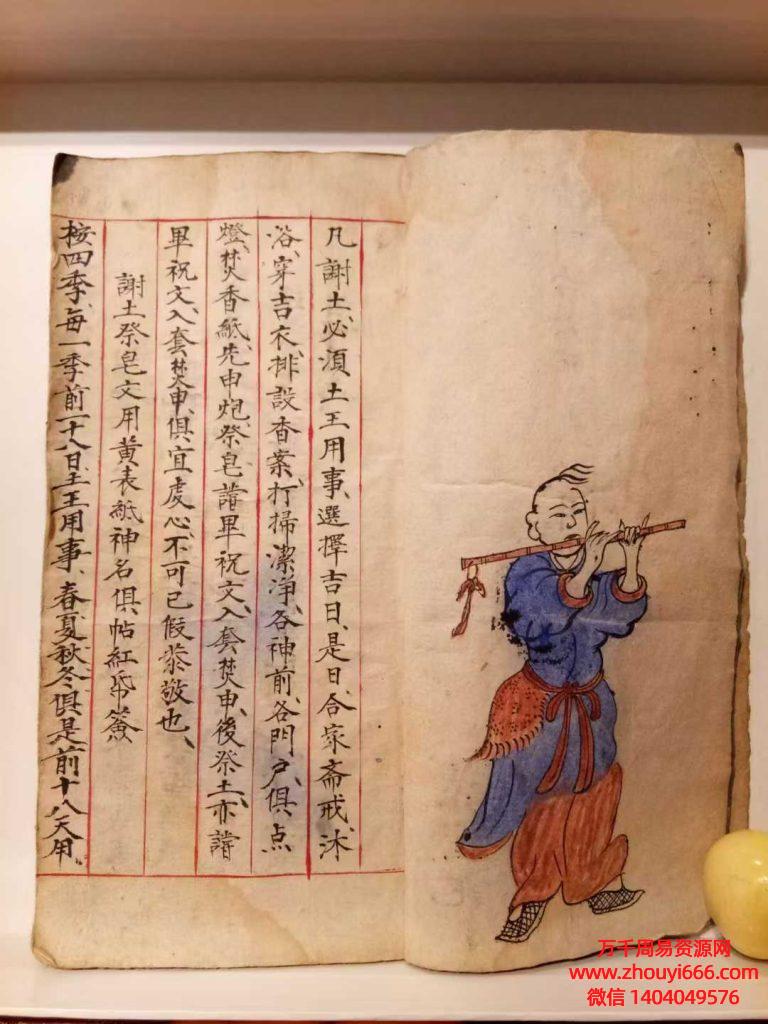 凡謝土、必須土王用事、選擇吉日、是日、合家斋戒、沐
浴、穿吉衣、排設香案、打掃潔净、各神前、各門户、俱点
燈、焚香紙、先申炮、祭皂、讀畢祝文、入套焚申、後祭土、亦讀
畢祝文、入套焚申、俱宜虔心、不可已假恭敬也、
謝土祭皂文用黄表紙神名俱帖紅帋簽
按四季、每一季前一十八日、土王用事、春夏秋冬、俱是前十八天用、
万千周易资源网
www.zhouyi666.com
微信 1404049576